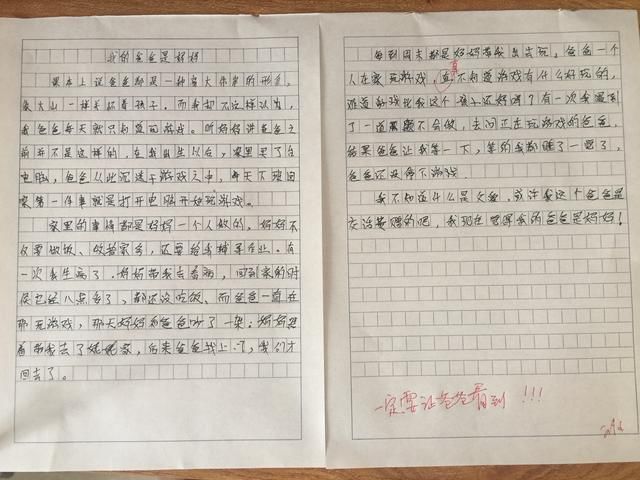 我的爸爸是妈妈
课本上说爸爸都是一种高大来着的形象,
象大山一样关怀着孩子。而我却不这样认为,
我爸爸每天就只知道玩游戏。听妈妈讲爸爸之
前并不是这样的,在我出生以后,家里买了台
电脑,爸爸从此沉迷于游戏之中,每天下班回
家第一件事就是打开电脑开始玩游戏。
家里的事情都是妈妈一个人做的,妈妈不
仅要做饭、收拾家务,还要给我辅导作业。有
一次我生病了,妈妈带我去看病,回到家的时
候已经八点多了,都还没吃饭,而爸爸一直在
那玩游戏,那天妈妈和爸爸吵了一架,妈妈
着带我去了姥姥家,后来爸爸找上门,我们才
回去了。
每到周末都是妈妈带我出去玩,爸爸一个
人在家玩游戏,真不知道游戏有什么好玩的,
难道游戏比我这个孩子还好吗?有一次我遇到
了一道题不会做,去问正在玩游戏的爸爸,
结果爸爸让我等一下,等的我都睡了一觉了,
爸爸还没停下游戏。
我不知道什么是父爱,或许我这个爸爸是
充话费赠的吧,我现在觉得我的爸爸是妈妈!
一定要让爸爸看到!!!